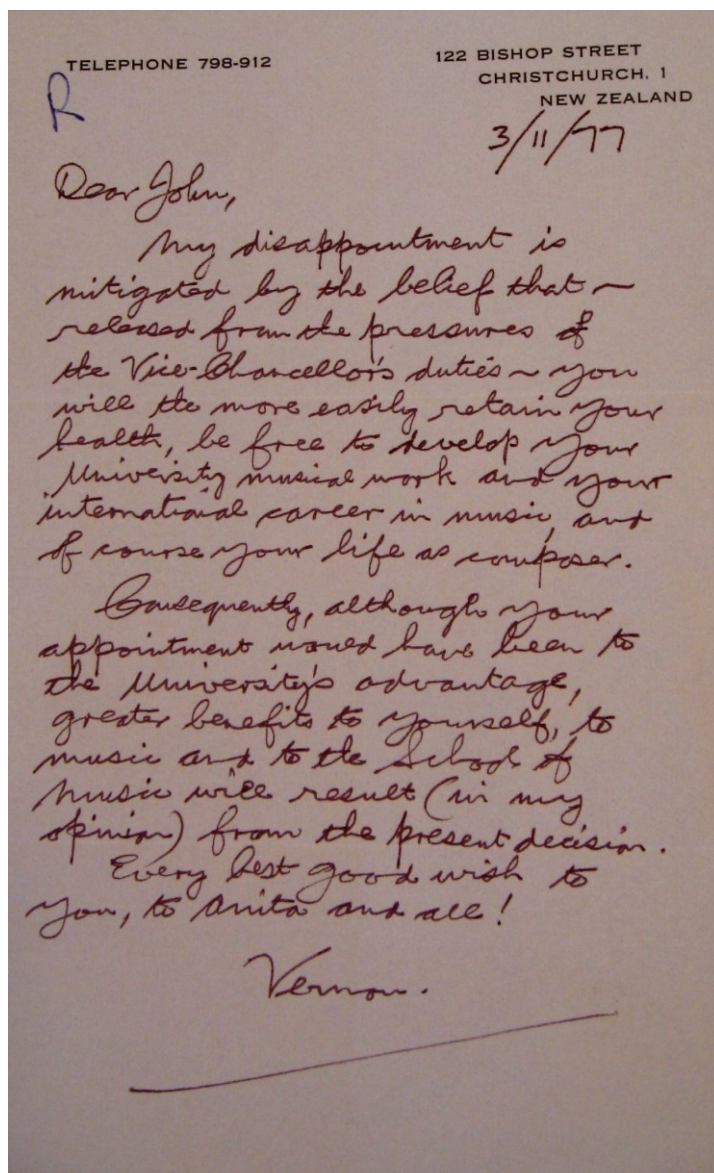 TELEPHONE 798-912
122 BISHOP STREET
CHRISTCHURCH. 1
NEW ZEALAND
R
3/11/77
Dear John,
My disappointment is
mitigated by the belief that ~
released from the pressures of
the Vice-Chancellor's duties ~ you
will the more easily retain your
health, be free to develop your
University musical work and your
international career in music, and
of course your life as composer.
Consequently, although your
appointment would have been to
the University's advantage,
greater benefits to yourself, to
music and to the School of
Music will result (in my
opinion) from the present decision.
Every best good wish to
you, to Anita and all!
Vernon.